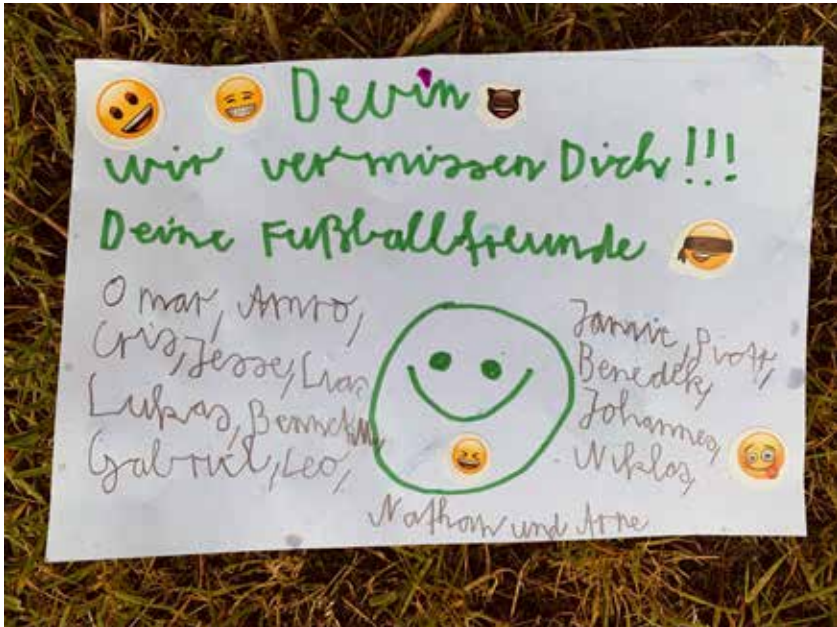 Devin
wir vermissen Dich!!!
Deine Fußballfreunde
Omar, Amro,
Cris, Jesse, Lias
Lukas, Bennet,
Gabriel, Leo,
Jannic, Piotr,
Benedek,
Johannes,
Niklas,
Nathan und Arne